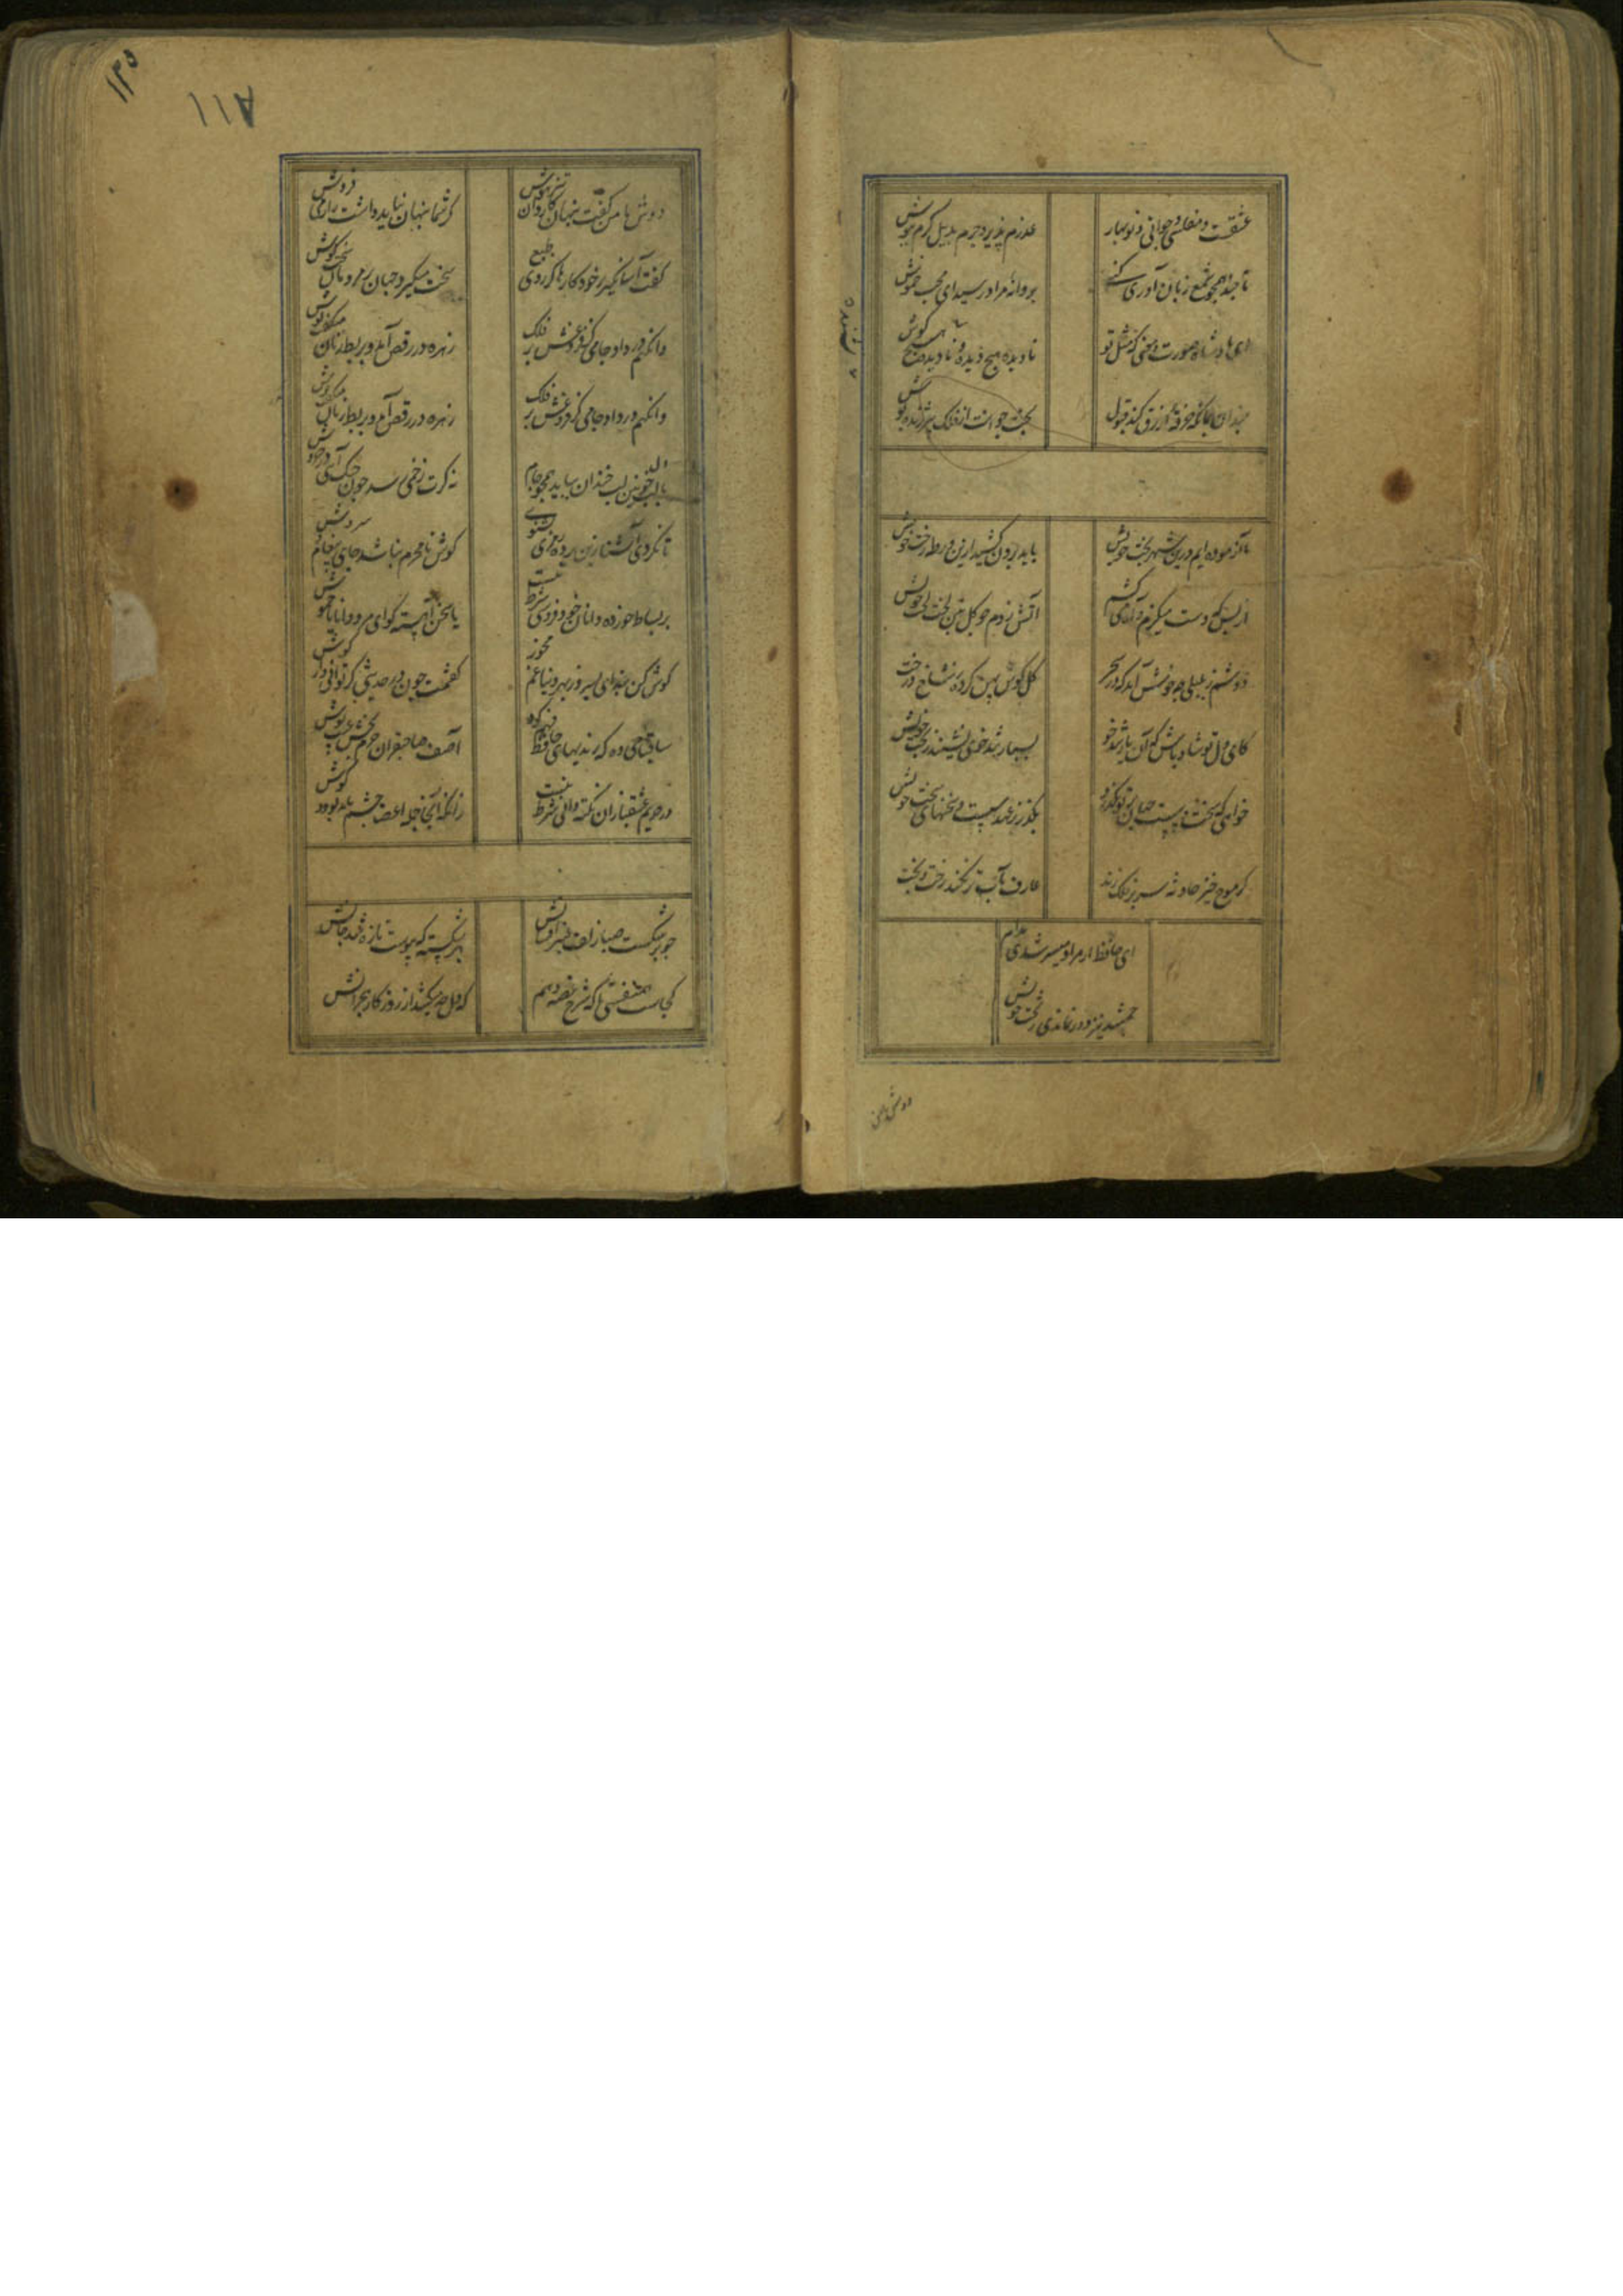 عشقست و مفلسی و جوانی و نوبهار
عذرم پذیر و جرم بذیل کرم بپوش
تا چند همچو شمع زبان آوری کنی
پروانه مراد رسید ای محب خموش
ای پادشاه صورت و معنی که مثل تو
نادیده هیچ دیده و نشنیده هیچ گوش
چندان بمان که خرقه ازرق کند قبول
بخت جوانت از فلک پیر ژنده پوش
ما آزموده ایم درین شهر بخت خویش
باید برون کشید ازین ورطه رخت خویش
از بس که دست میگزم و آه میکشم
آتش زدم چو گل بتن لخت لخت خویش
دوشم ز بلبلی چه خوش آمد که در سحر
گل گوش پهن کرده ز شاخ درخت
کای دل تو شاد باش که آن یار تندخو
بسیار تندخوی نشیند ز بخت خویش
خواهی که سخت و سست جهان بر تو بگذرد
بگذر ز عهد سست و سخنهای سخت خویش
گر موج خیز حادثه سر بر فلک زند
عارف بآب تر نکند رخت و بخت
ای حافظ ار مراد میسر شدی مدام
جمشید نیز دور نماندی ز تخت خویش
دوش با من
۱۲۵
۱۱۸
دوش با من گفت پنهان کاردانی تیزهوش
کز شما پنهان نباید داشت راز می فروش
گفت آسان گیر بر خود کارها کز روی طبع
سخت میگیرد جهان بر مردمان سخت کوش
وانگهم در داد جامی کز فروغش بر فلک
زهره در رقص آمد و بربط زنان میگفت نوش
وانگهم در داد جامی کز فروغش بر فلک
زهره در رقص آمد و بربط زنان میگفت نوش
با دل خونین لب خندان بیاید همچو جام
نه گرت زخمی رسد چون چنگ آیی در خروش
تا نگردی آشنا زین پرده رمزی نشنوی
گوش نامحرم نباشد جای پیغام سروش
بر بساط خورده دانان خود فروشی شرط نیست
یا سخن آهسته گو ای مرد دانا یا خموش
گوش کن پند ای پسر وز بهر دنیا غم مخور
گفتمت چون در حدیثی گر توانی دار گوش
ساقیا می ده که رندیهای حافظ فهم کرد
آصف صاحبقران جرم بخش عیب پوش
در حریم عشقبازان نکته دانی شرط نیست
زانکه آنجا جمله اعضا چشم باید بود و گوش
چو بر شکست صبا زلف عنبر افشانش
بهر شکسته که پیوست تازه شد جانش
کجاست همنفسی تا که شرح غصه دهم
که دل چه میکشد از روزگار هجرانش